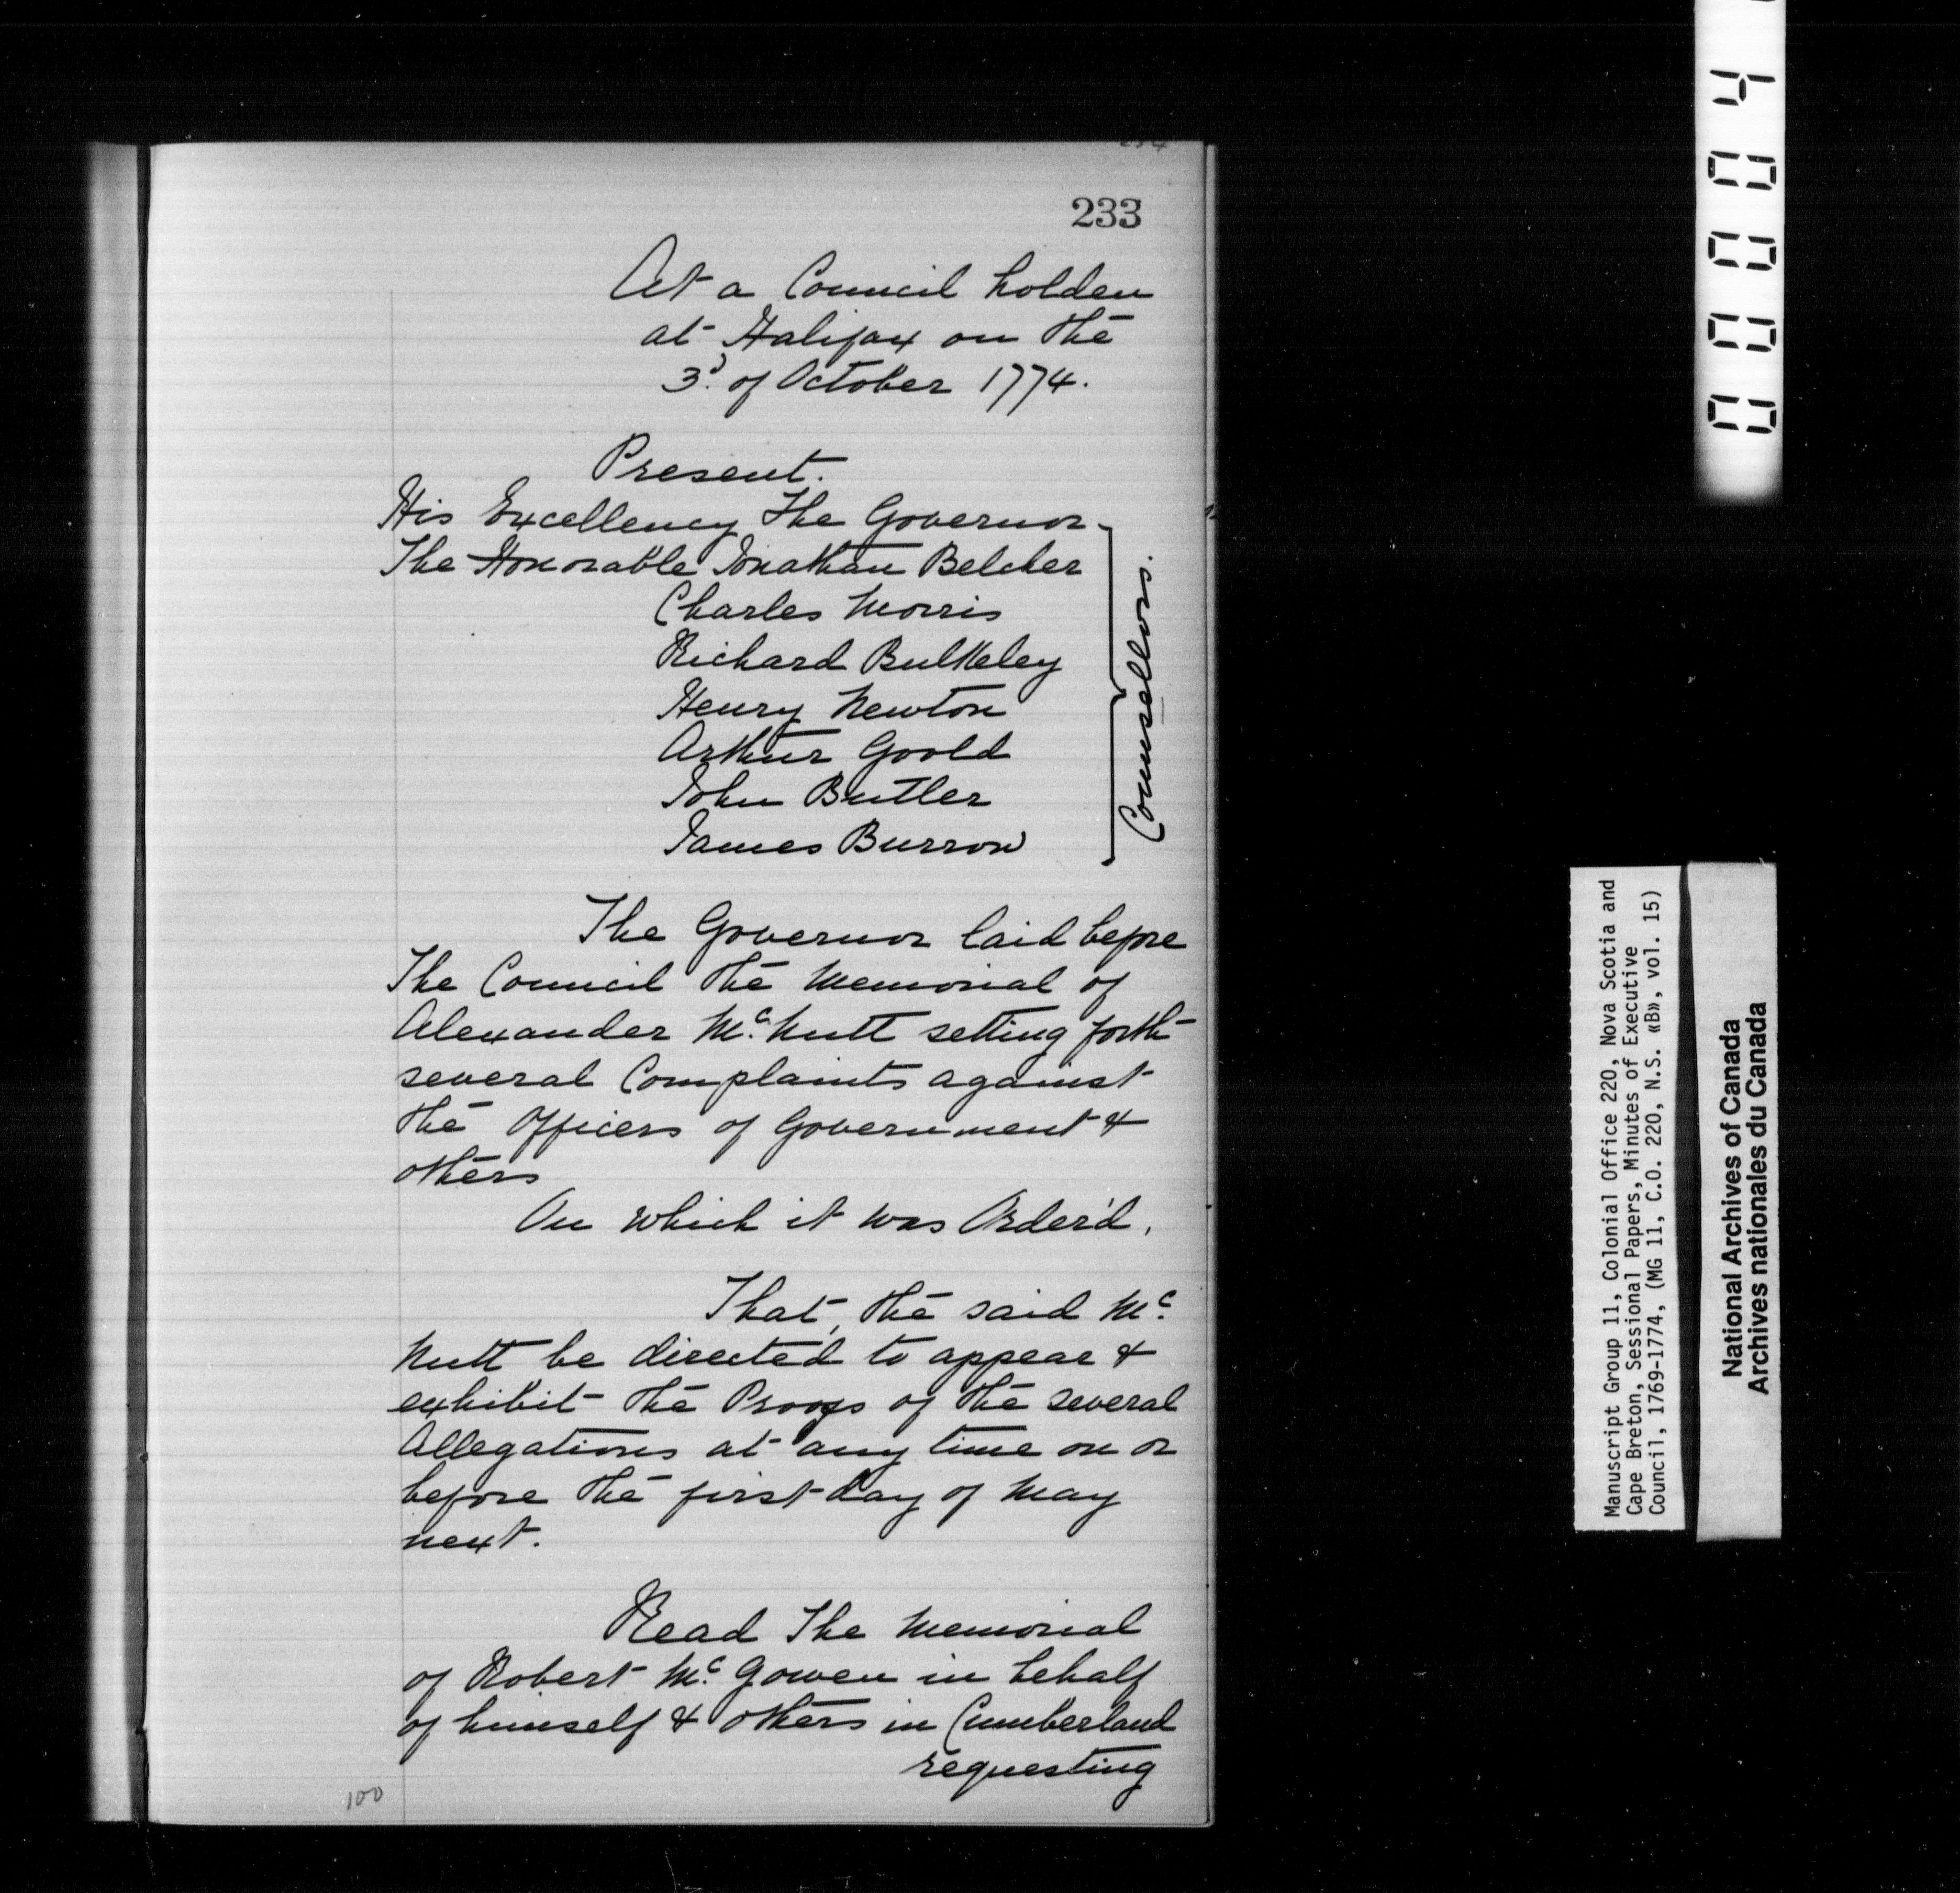 233
At a Council holden
at Halifax on the
3d. of October 1774.
Present.
His Excellency The Governor
The Honorable Jonathan Belcher
Charles Morris
Richard Bulkeley
Henry Newton
Arthur Goold
John Butler
James Burrow
Counsellors.
The Governor laid before
The Council the Memorial of
Alexander Mc. Nutt setting forth
several Complaints against
the Officers of Government &
others
On which it was Order'd,
That, the said Mc.
Nutt be directed to appear &
exhibit the Proofs of the several
Allegations at any time on or
before the first day of May
next.
Read The Memorial
of Robert Mc. Gowen in behalf
of himself & others in Cumberland
requesting
100
00004
Manuscript Group 11, Colonial Office 220, Nova Scotia and
Cape Breton, Sessional Papers, Minutes of Executive
Council, 1769-1774, (MG 11, C.O. 220, N.S. «B», vol. 15)
National Archives of Canada
Archives nationales du Canada